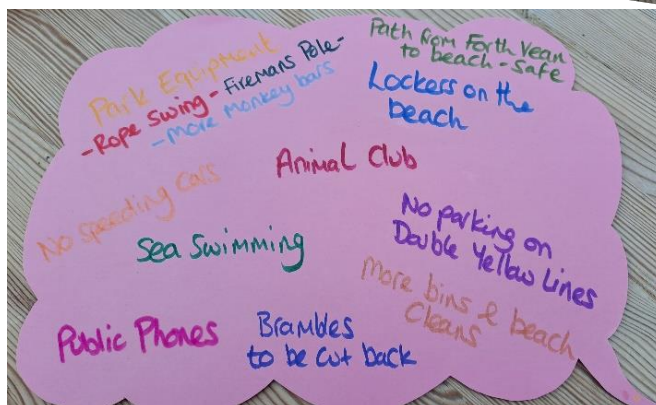 Park Equipment
-Rope Swing - Firemans Pole-
-More Monkey bars
Path from Forth Vean
to beach - safe
Lockers on the
beach
Animal Club
No speeding cars
Sea Swimming
No parking on
Double Yellow Lines
More bins & beach
Cleans
Public Phones
Brambles
to be cut back